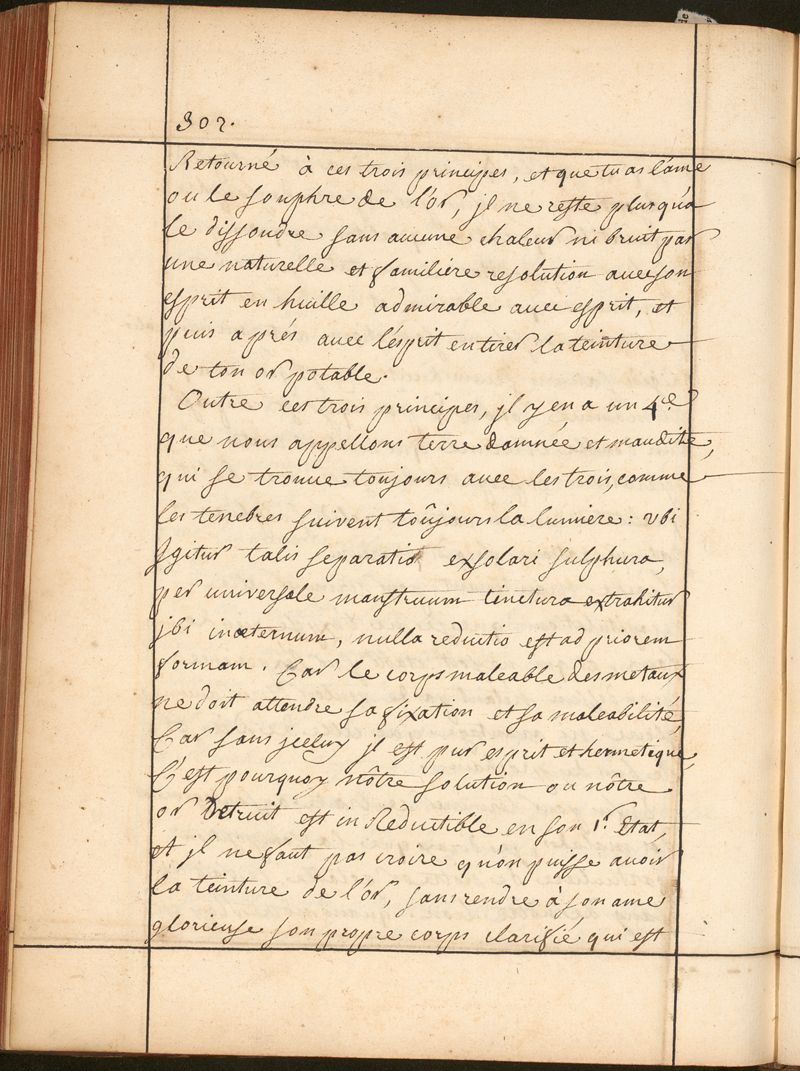 302.
Retourné à ces trois principes, et que tu as l'ame
ou le souphre de l'or, jl ne reste plus qu'a
le dissoudre sans aucune chaleur ni bruit par
une naturelle et familiére resolution avec son
esprit en huille admirable avec esprit, et
puis aprés avec l'ésprit en tirer la teinture
de ton or potable.
Outre ces trois principes, jl y en a un 4.e
que nous appellons terre damnée et maudite,
qui se trouue toujours avec les trois, comme
les tenebres suivent toûjours la lumiere: vbi
Igitur talis separatio ex solari sulphura,
per universale manstruum tinctura extrahitur
jbi inæternum, nulla reductio est ad priorem
formam. Car le corps maleable des metaux
ne doit attendre sa fixation et sa maleabilité,
Car sans jceluy jl est pur esprit et hermetique,
C'est pourquoy nôtre solution ou nôtre
or Detruit est in Reductible en son 1.r Etat,
et jl ne faut pas croire qu'on puisse avoir
la teinture de l'or, sans rendre à son ame
glorieuse son propre corps clarifié qui est